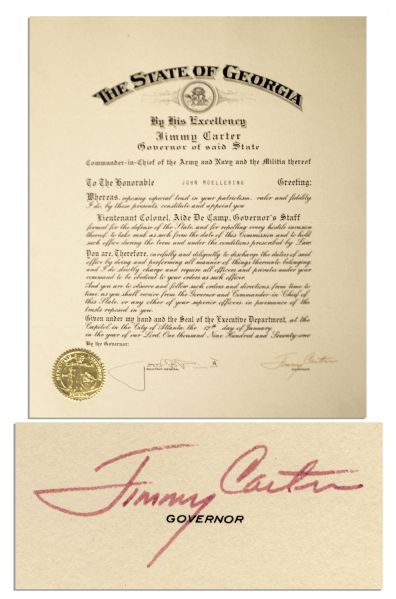 THE STATE OF GEORGIA
By His Excellency
Jimmy Carter
Governor of said State
Commander-in-Chief of the Army and Navy and the Militia thereof
To The Honorable JOHN MOELLERING Greeting:
Whereas, reposing especial trust in your patriotism, valor and fidelity,
I do, by these presents, constitute and appoint you
Lieutenant Colonel, Aide De Camp, Governor's Staff
formed for the defense of the State, and for repelling every hostile invasion
thereof, to take rank as such from the date of this Commission and to hold
such office during the term and under the conditions prescribed by Law.
You are, Therefore, carefully and diligently to discharge the duties of said
office by doing and performing all manner of things thereunto belonging,
and I do strictly charge and require all officers and privates under your
command to be obedient to your orders as such officer.
And you are to observe and follow such orders and directions, from time to
time, as you shall receive from the Governor and Commander-in-Chief of
this State, or any other of your superior officers in pursuance of the
trusts reposed in you.
Given under my hand and the Seal of the Executive Department, at the
Capitol in the City of Atlanta the 12th day of January
in the year of our Lord One thousand Nine Hundred and Seventy-one
By the Governor:
Jimmy Carter
GOVERNOR
Jimmy Carter
GOVERNOR